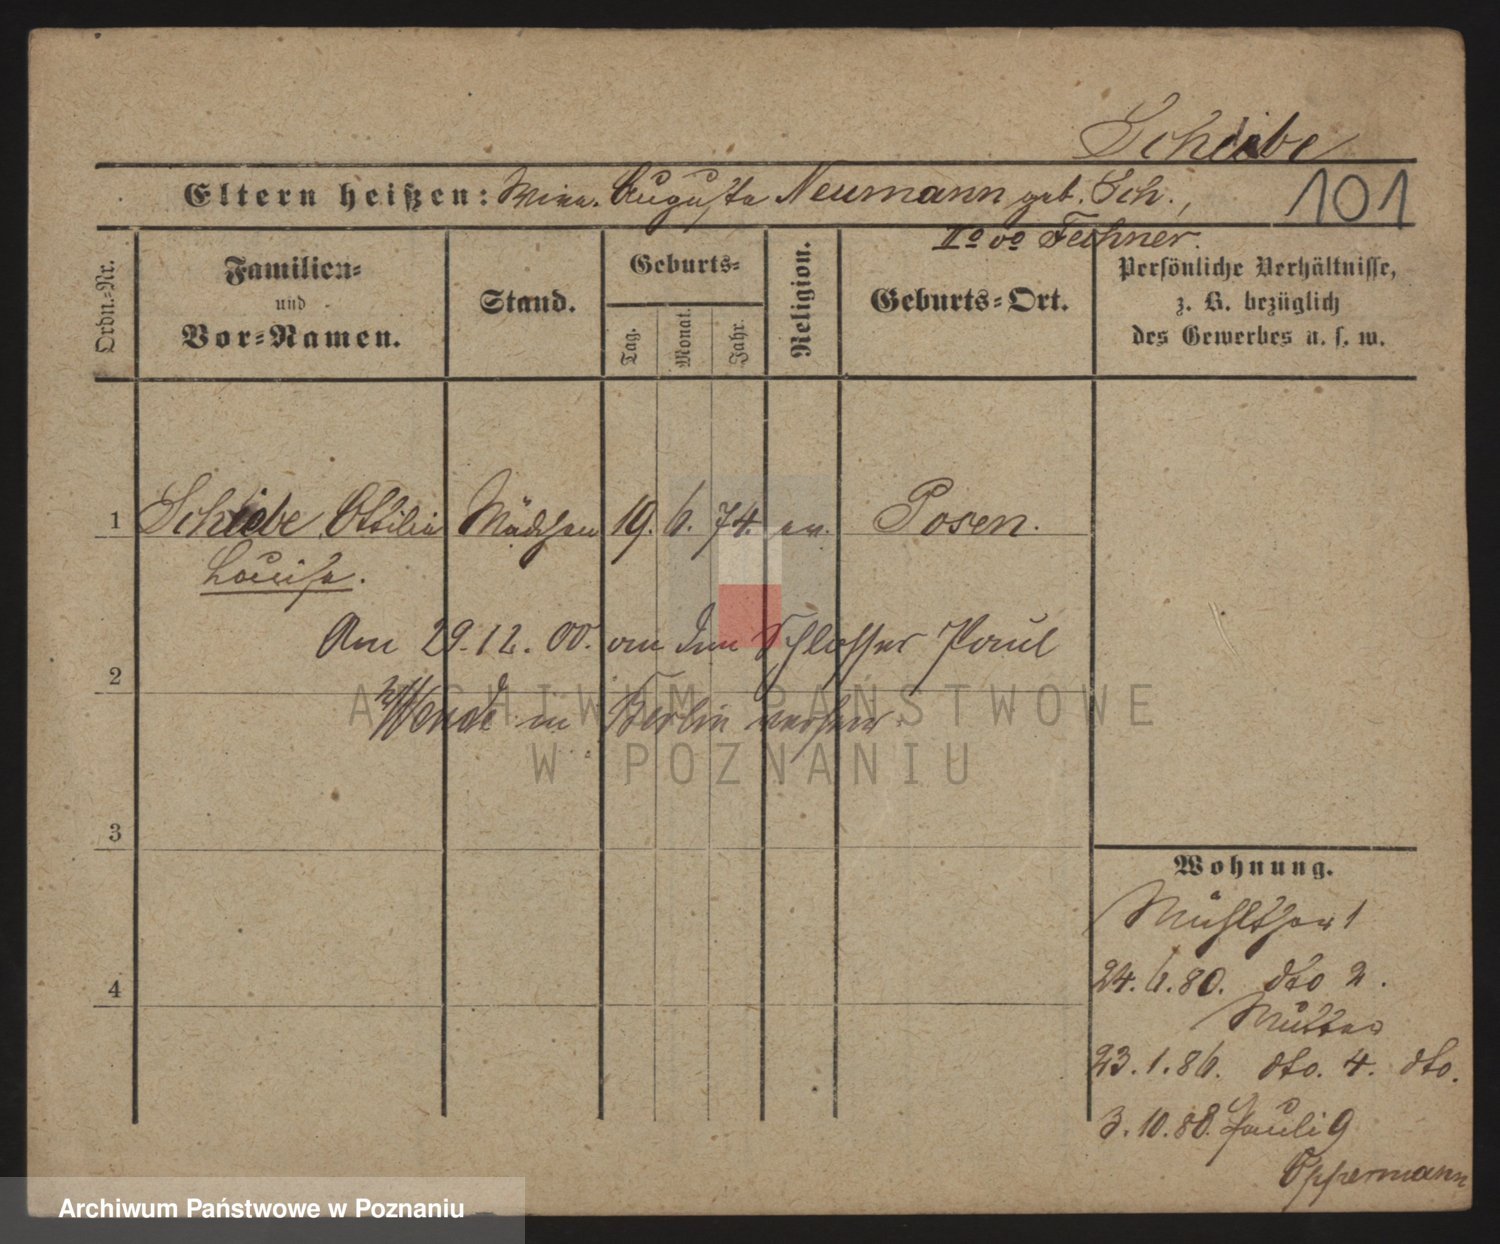 Scheibe
Eltern heißen: Wwe. Auguste Neumann geb. Sch.,
101
IIo vo Fechner.
Ordn.-Nr.
Familien-
und
Vor-Namen.
Stand.
Geburts-
Tag.
Monat.
Jahr.
Religion.
Geburts-Ort.
Persönliche Verhältnisse,
z. B. bezüglich
des Gewerbes u. s. w.
1 Scheibe Ottilie Mädchen 19. 6. 74. ev. Posen.
Louise.
Am 29.12.00. an den Schlosser Paul
2
Wende in Berlin verheir.
ARCHIWUM PAŃSTWOWE
W POZNANIU
3
Wohnung.
Mühlthor 1
24.6.80. dto 2.
4
Mutter
23.1.86. dto. 4. dto.
3.10.88. Pauli 9
Oppermann
Archiwum Państwowe w Poznaniu